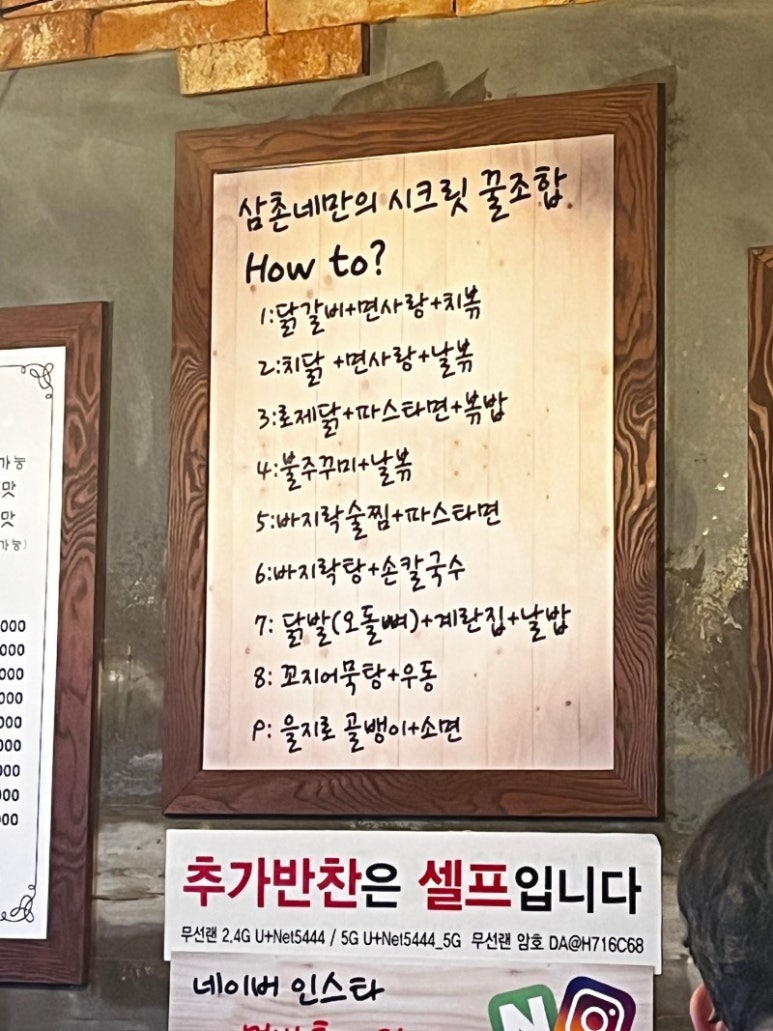 삼촌네만의 시크릿 꿀조합
How to?
1:닭갈비+면사랑+치볶
2:치닭 +면사랑+날볶
3:로제닭+파스타면+볶밥
4:불주꾸미+날볶
5:바지락술찜+파스타면
6:바지락탕+손칼국수
7: 닭발(오돌뼈)+계란집+날밥
8: 꼬지어묵탕+우동
9: 을지로 골뱅이+소면
가능
맛
맛
가능)
000
000
000
000
000
000
000
000
000
추가반찬은 셀프입니다
무선랜 2.4G U+Net5444 / 5G U+Net5444_5G 무선랜 암호 DA@H716C68
네이버 인스타
N